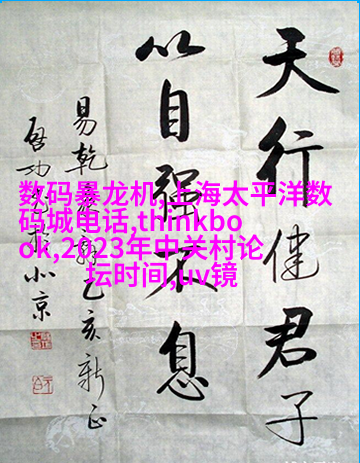 天行健君子
以自强不息
易乾乙亥新正
启功北京
数码暴龙机,上海太平洋数
码城电话,thinkbo
ok,2023年中关村论
坛时间,uv镜